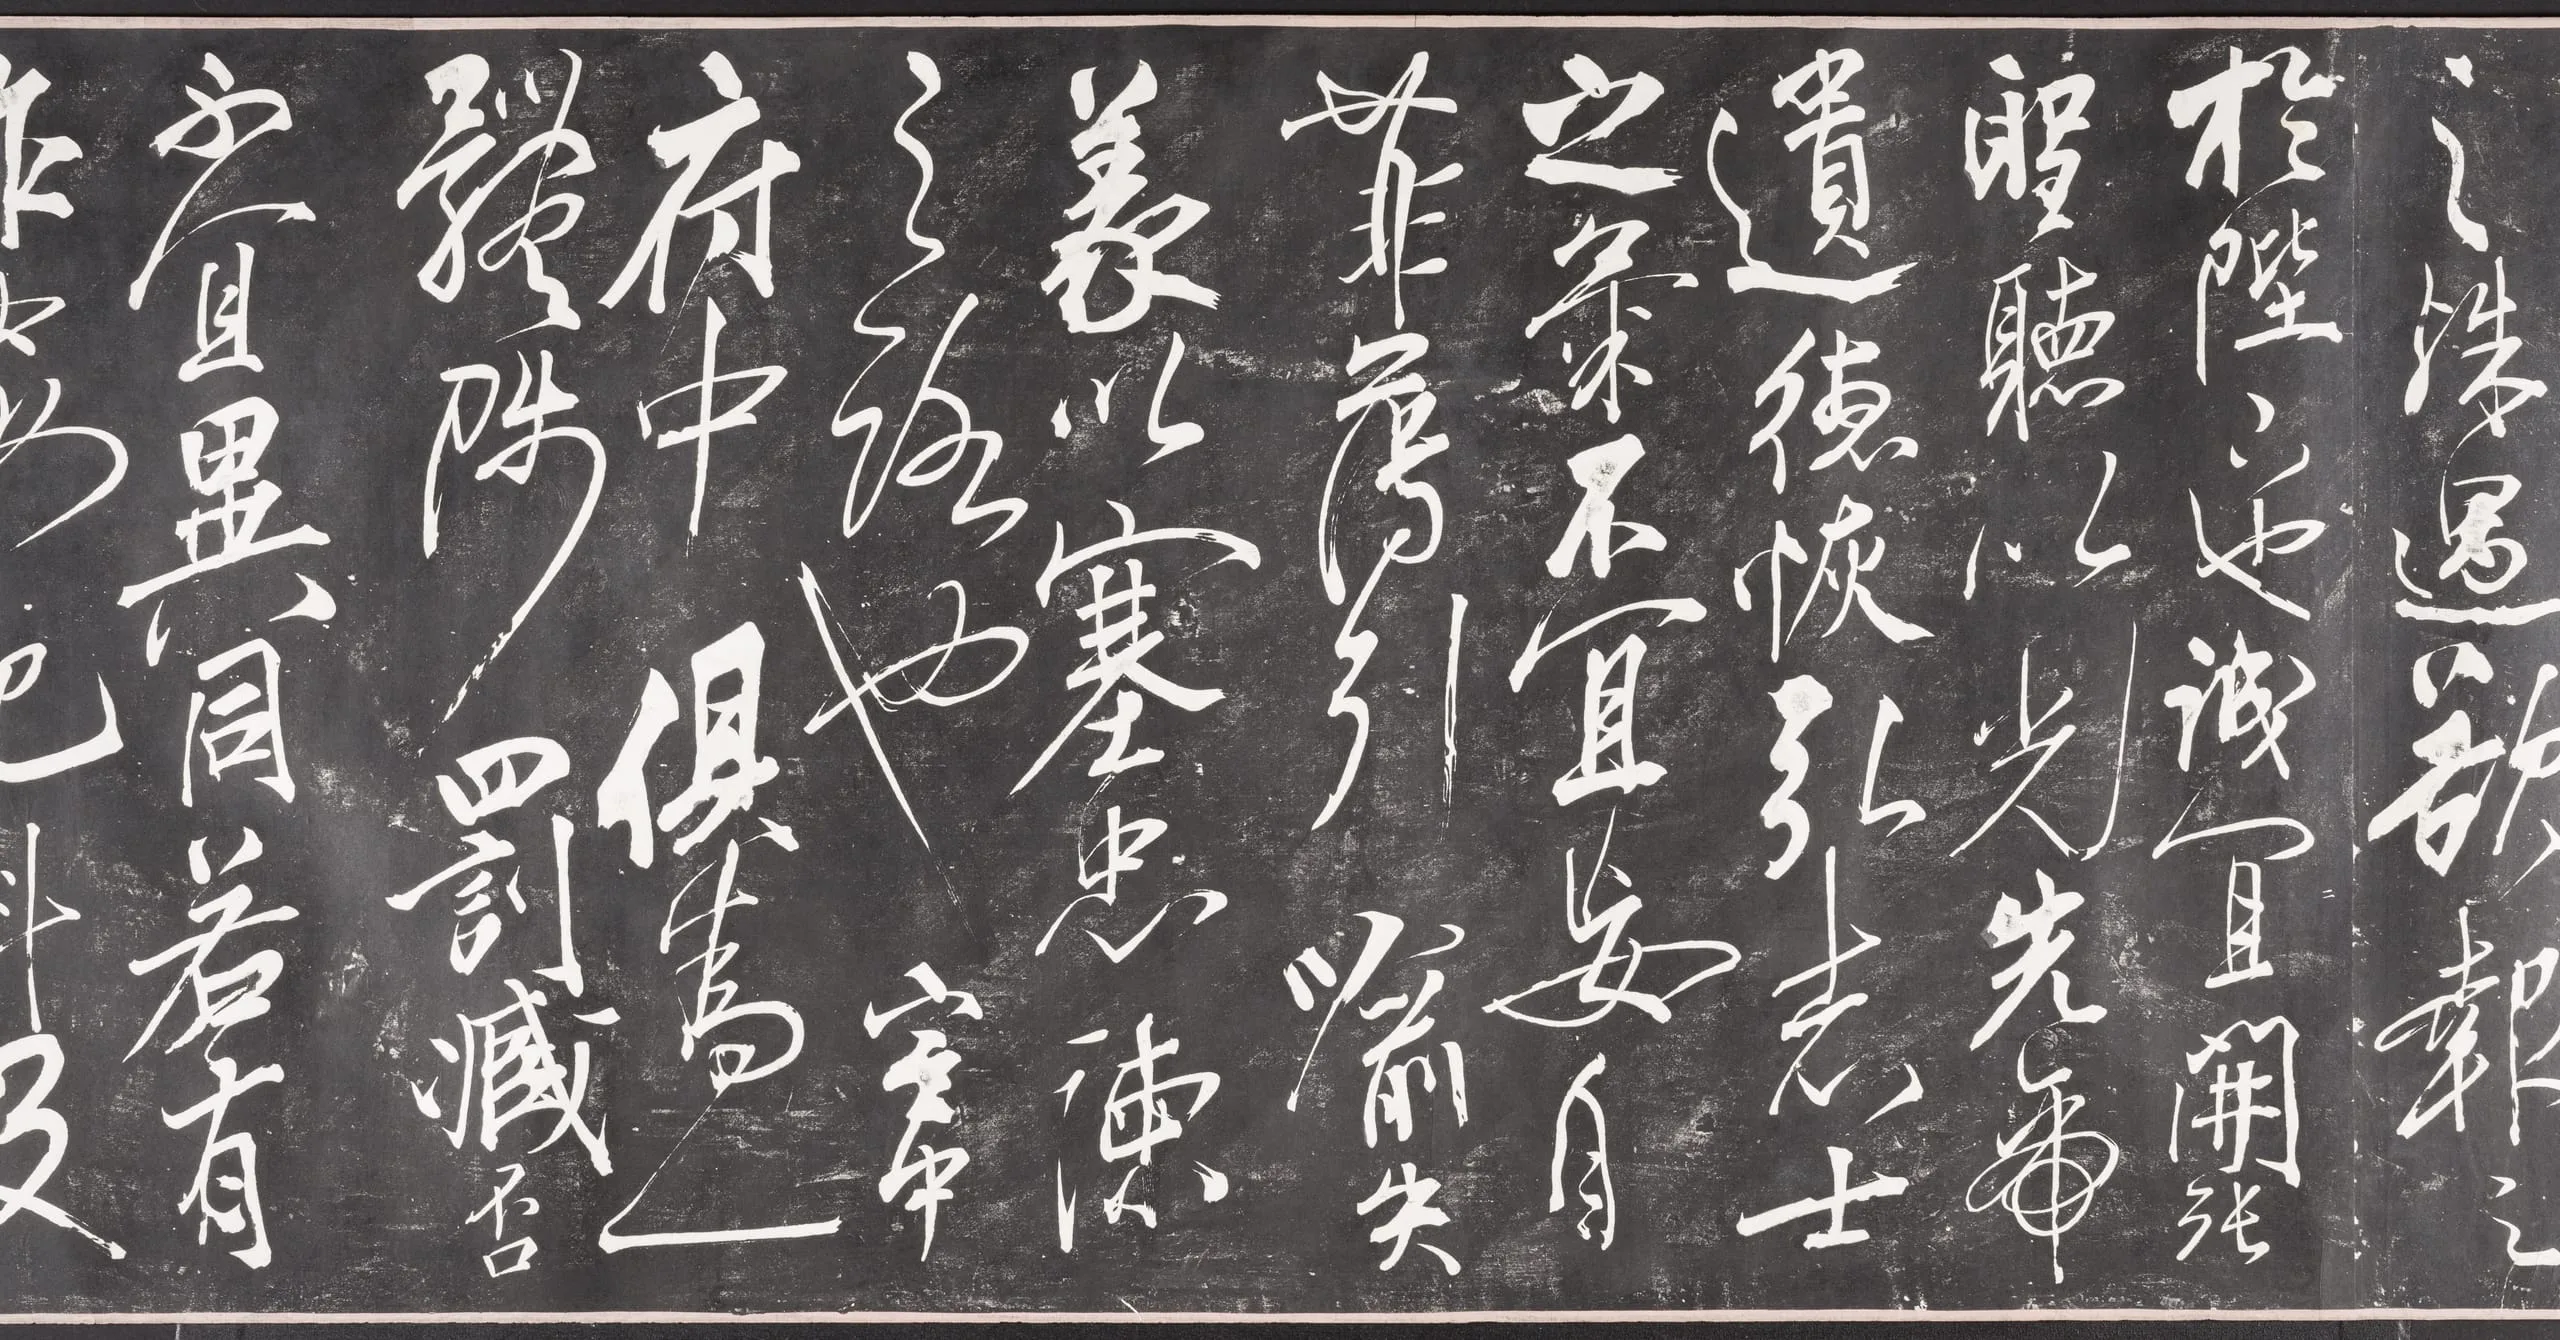 之殊遇欲報之
於陛下也誠宜開張
聖聽以光先帝
遺德恢弘志士
之氣不宜妄自
菲薄引喻失
義以塞忠諫
之路也宮中
府中俱為一
體陟罰臧否
不宜異同若有
作奸犯科及